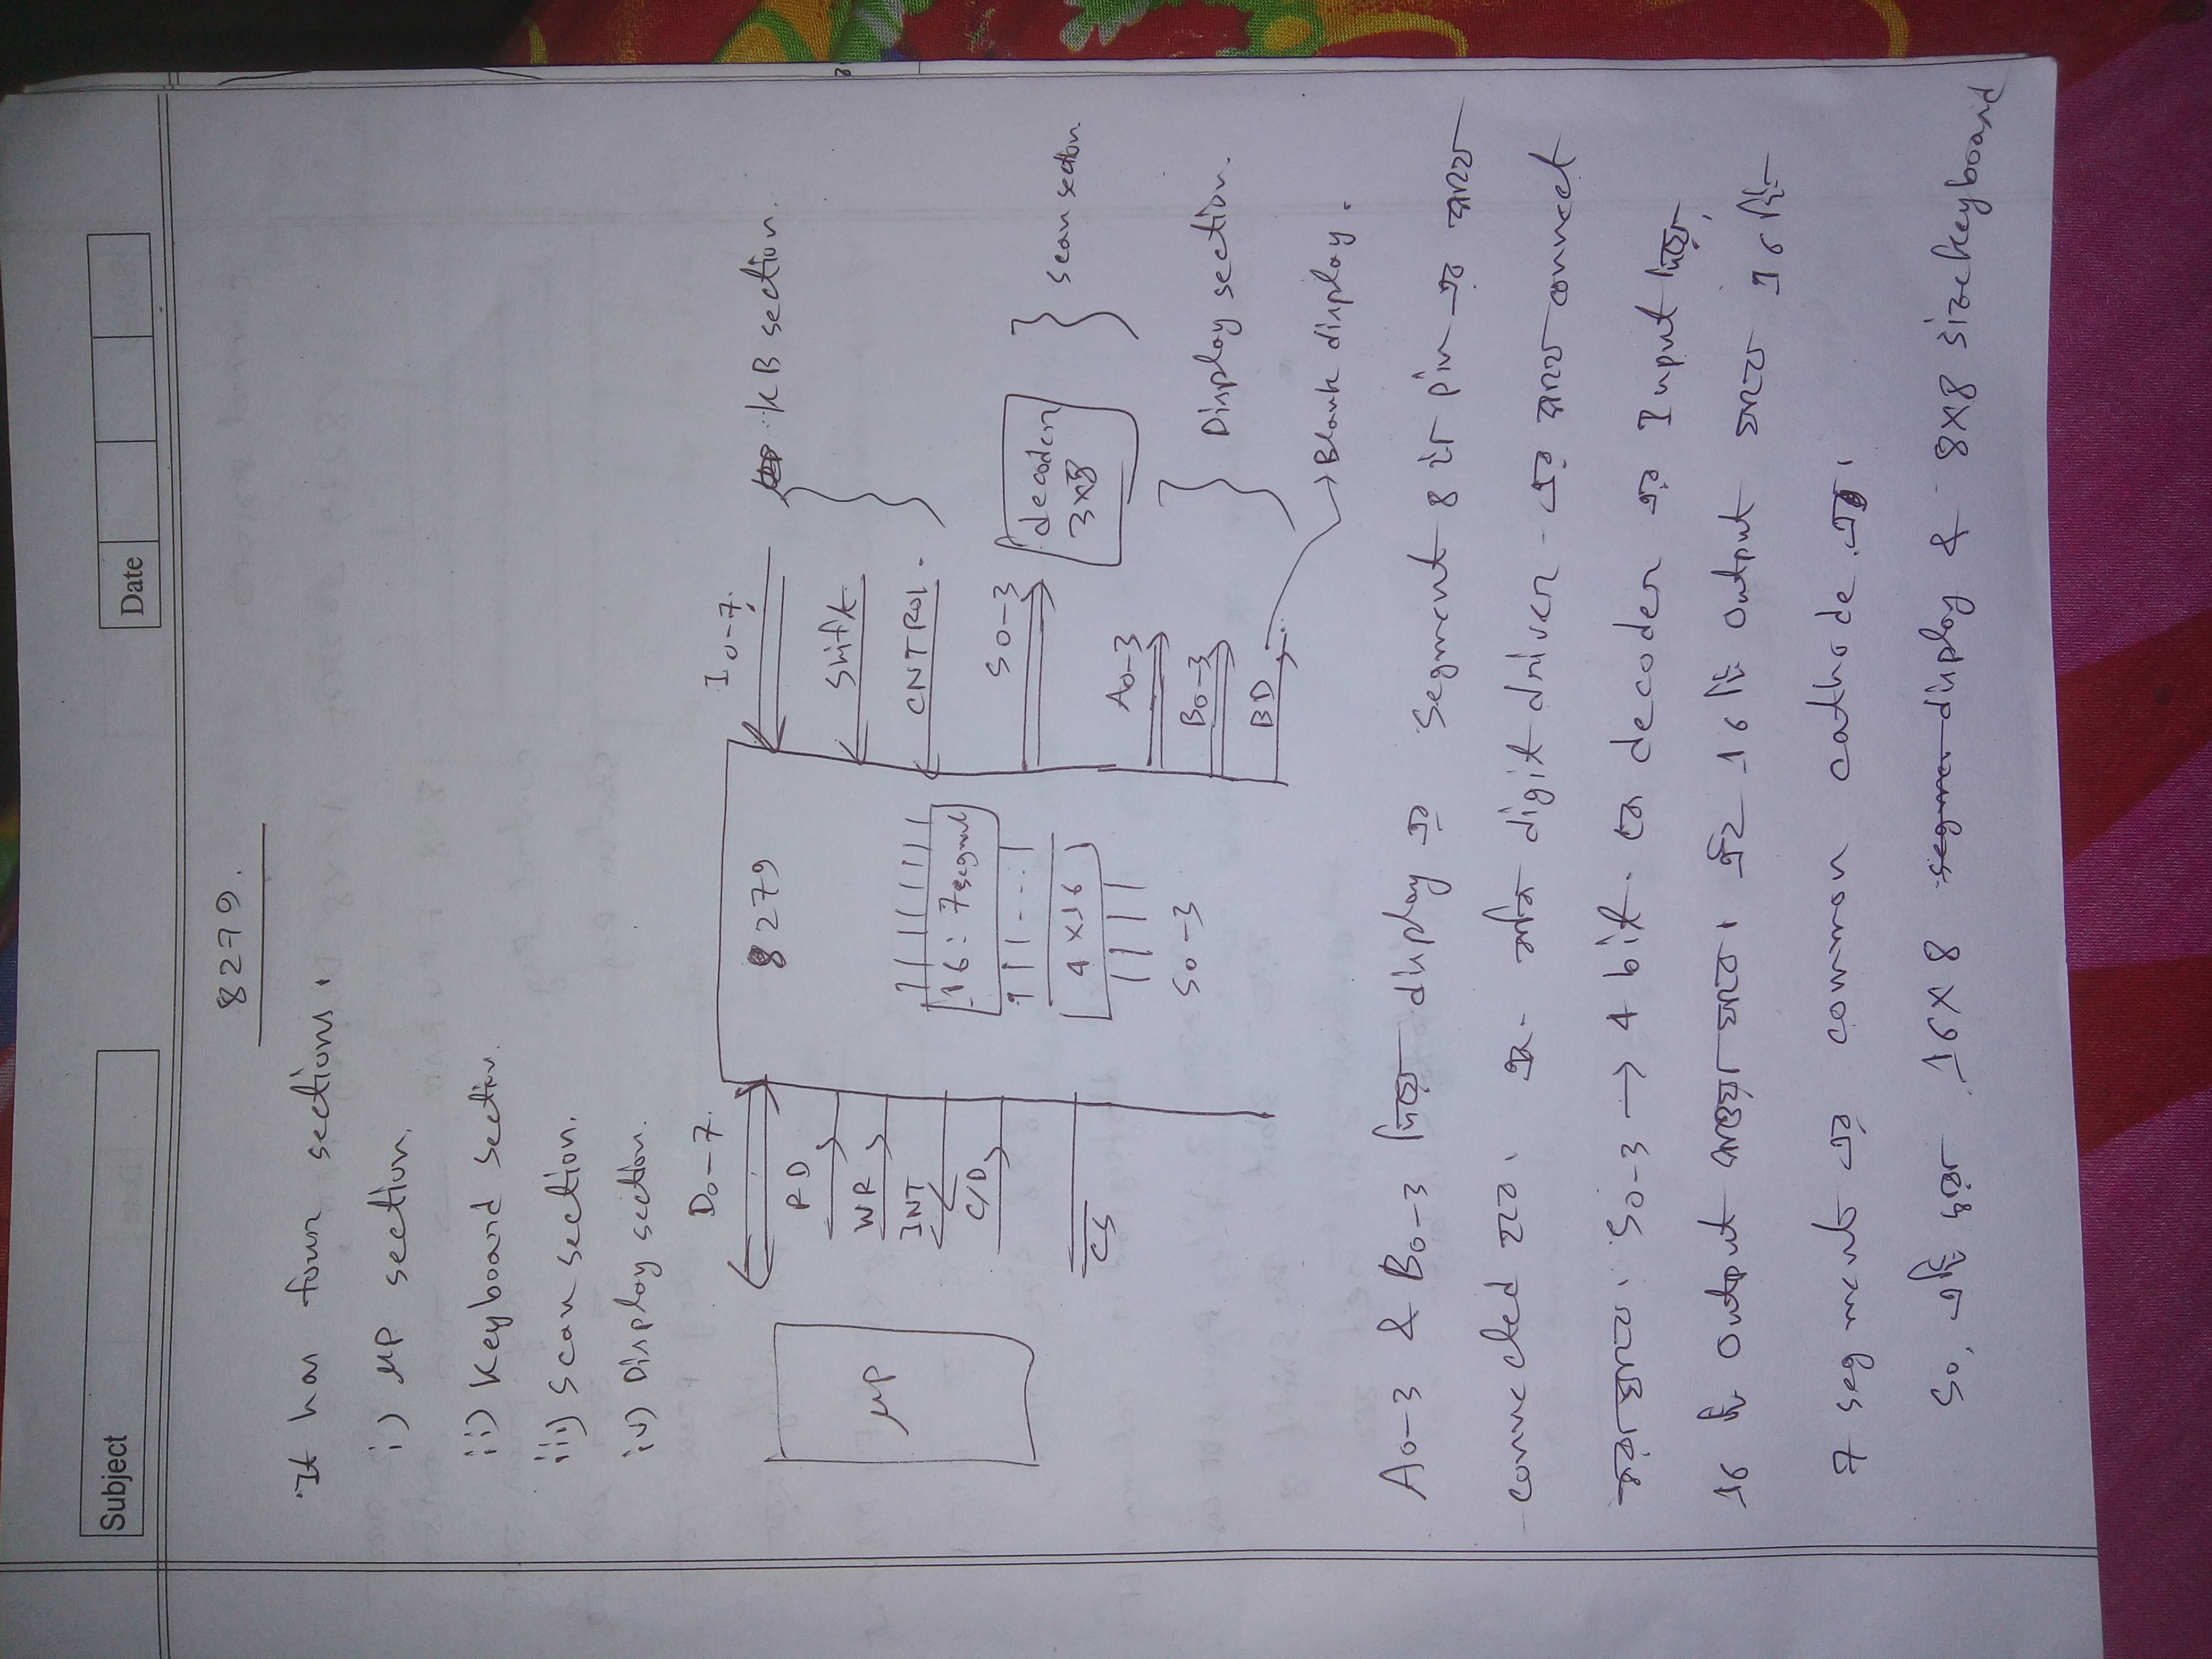 Subject
Date
8279.
It has four sections.
i) μP section.
ii) Keyboard section.
iii) Scan section.
iv) Display section.
μP
D0-7.
RD
WR
INT
C/D
CS
8279
16: 7segment
4x16
S0-3
I0-7.
Shift
CNTROL.
S0-3
A0-3
B0-3
BD
KB section.
decoder
3x8
scan section
Display section.
→ Blank display.
A0-3 & B0-3 দিয়ে display এর segment 8 টা pin এর সাথে
connected হবে। digit driver এর সাথে connect
করা হবে। S0-3 → 4 bit. decoder এ Input দিয়ে,
16 টি output পাওয়া যাবে। এই 16 টি output যাবে 16 টি
7 segment এর common cathode এ।
So, এটি দ্বারা 16x8 display & 8x8 size keyboard